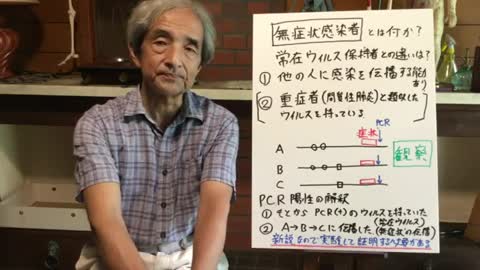 無症状感染者とは何か?
常在ウィルス保持者との違いは?
① 他の人に感染を伝播する能力あり
② 重症者(間質性肺炎)と類似した
ウィルスを持っている
PCR
症状
A
B
C
観察
PCR陽性の解釈
① もとから PCR(+)のウィルスを持っていた
(常在ウィルス)
② A→B→Cに伝播した(無症状の伝播)
新説なので実験して証明する必要がある